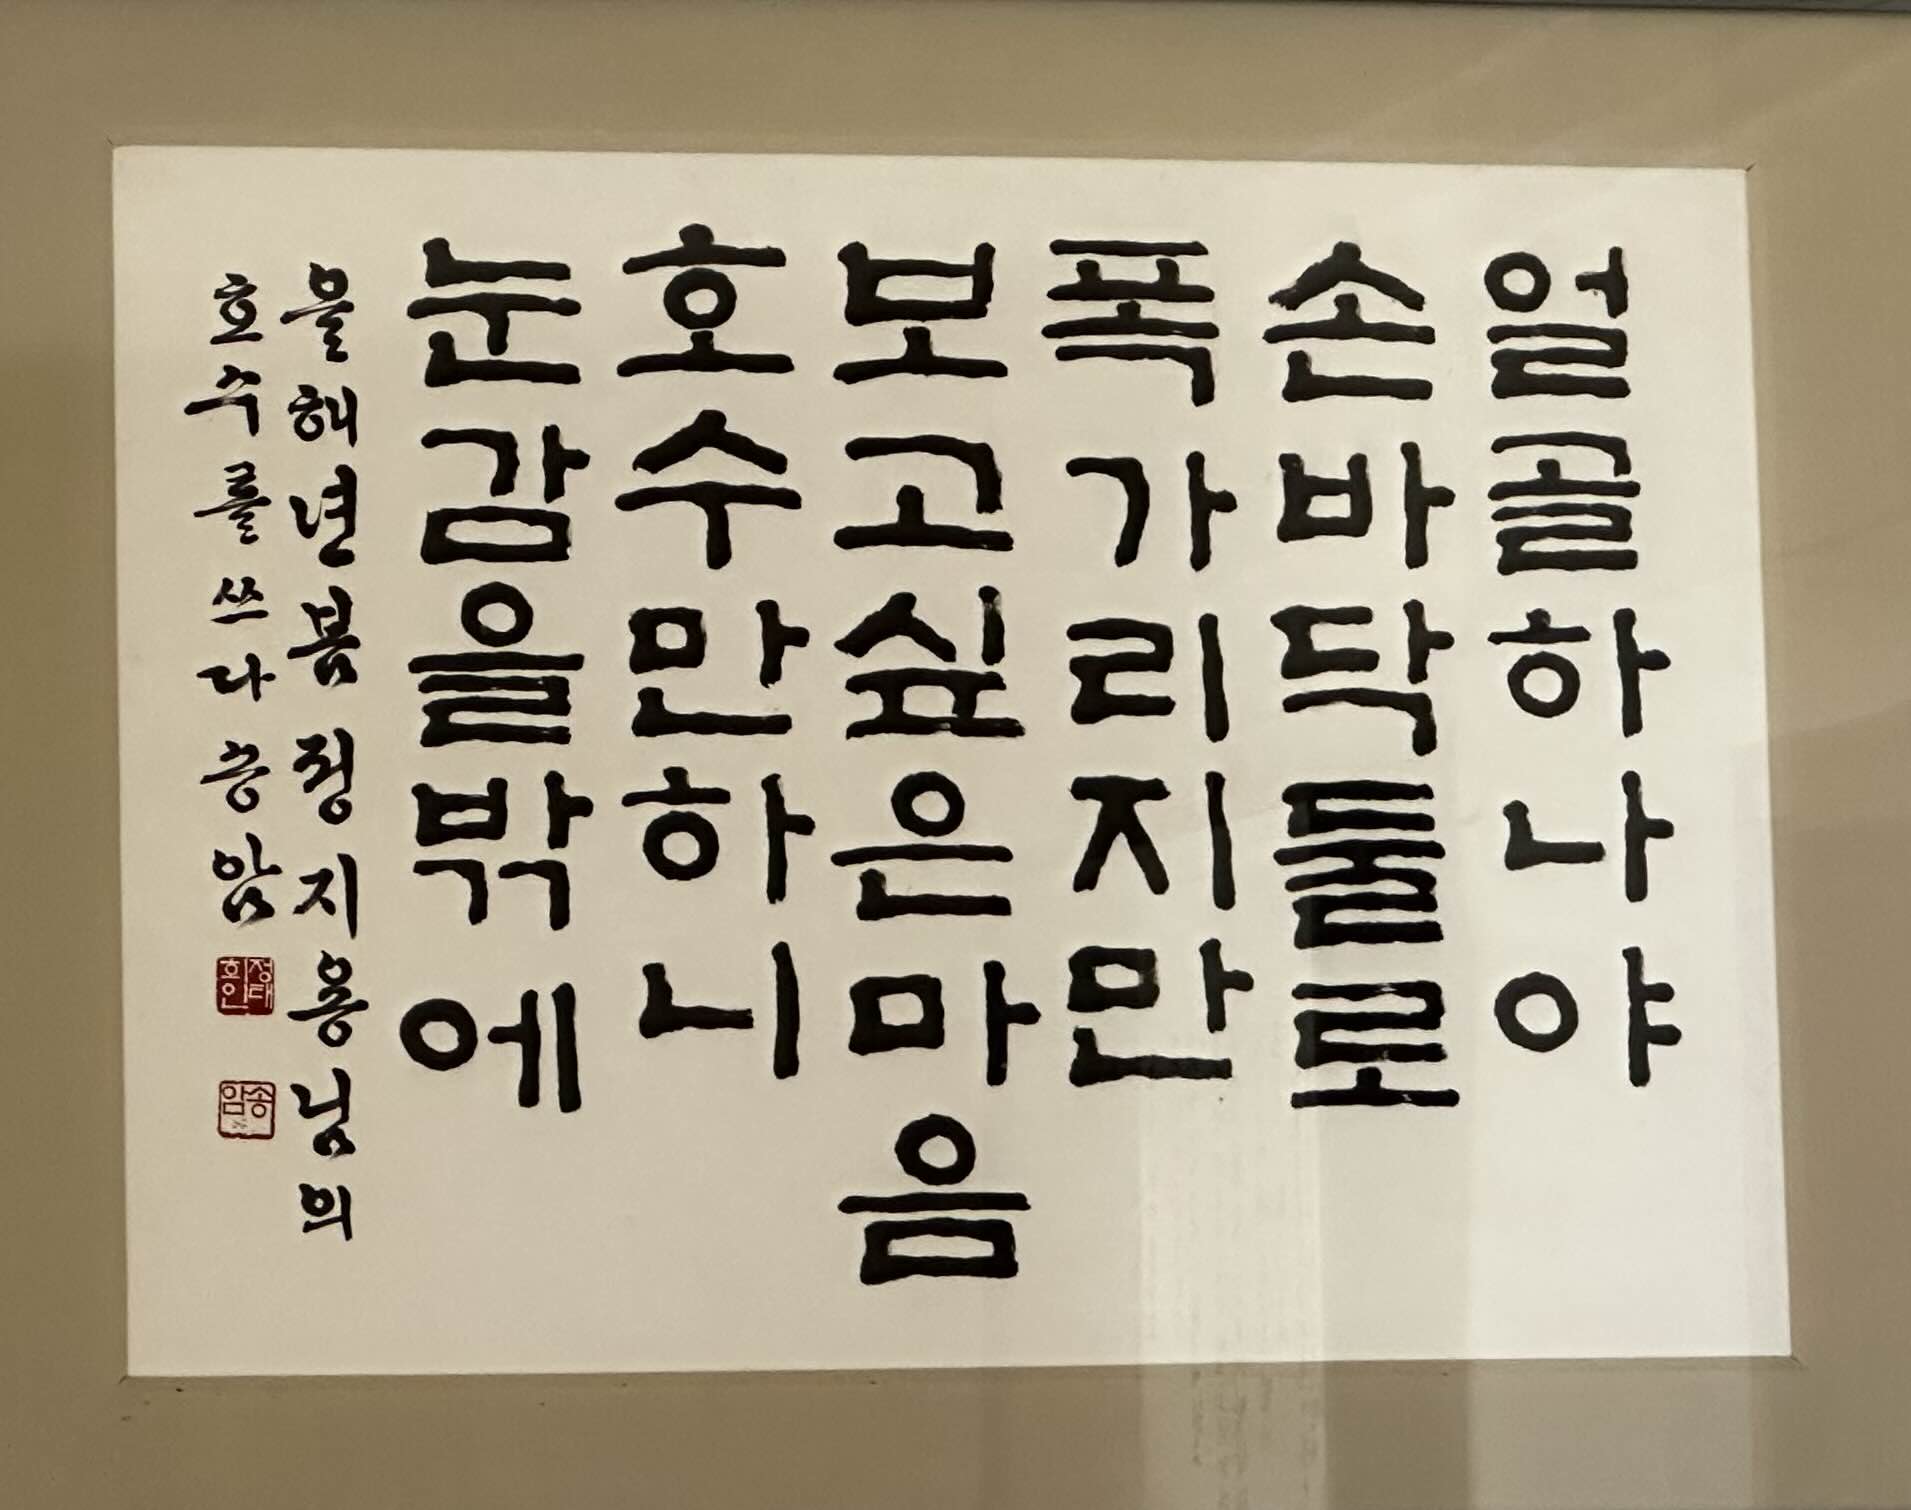 얼골하나야
손바닥둘로
폭가리지만
보고싶은마음
호수만하니
눈감을밖에
을해년봄정지용님의
호수를쓰다송암
정태
희인
송암